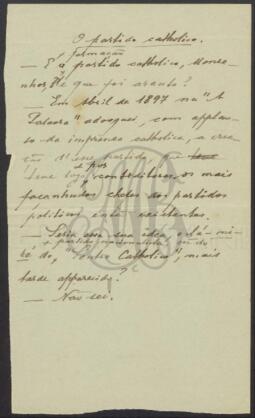 O partido catholico.
formação
— E a partido catholico, Monse-
nhor, é que foi avante?
— Em Abril de 1897 na "A
Palavra" advoguei, com applau-
so da imprensa catholica, a crea-
ção d'esse partido, que
e por
teve logo contradictores os mais
façanhudos chefes dos partidos
politicos então existentes.
— Seria essa sua idea, está-
partido nacionalista, ou do
"Centro Catholico", mais
tarde apparecido?
— Não sei.